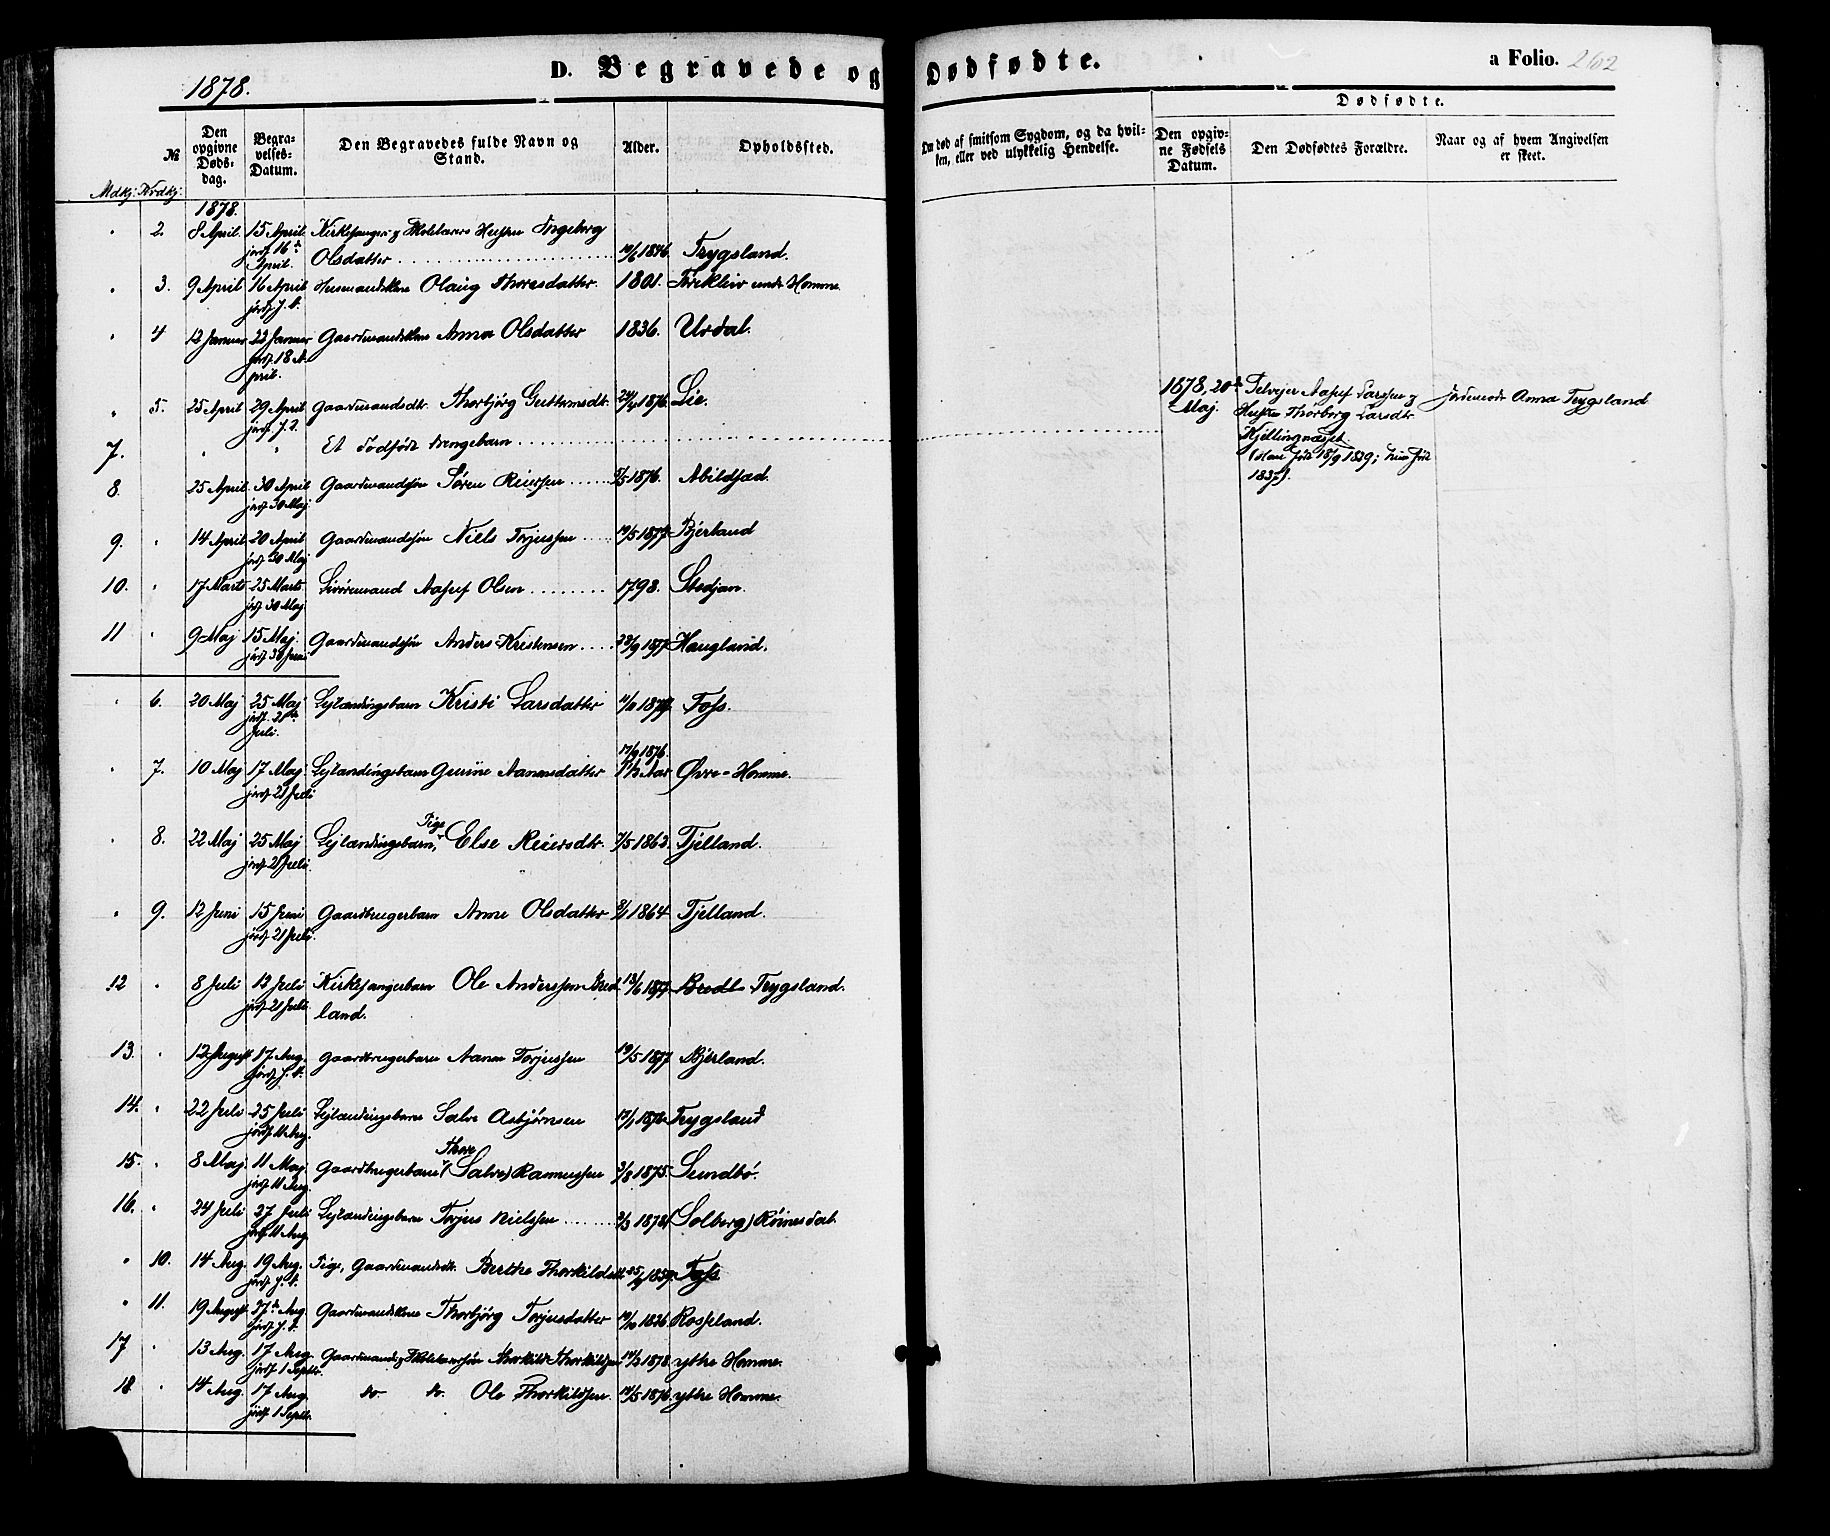 1878.
D. Begravede og Dødfødte.
a Folio. 262
Mdkj. Kvdkj.
№
Den opgivne Døds-dag.
Begra-velses-Datum.
Den Begravedes fulde Navn og Stand.
Alder.
Opholdssted.
Om død af smitsom Sygdom, og da hvil-ken, eller ved ulykkelig Hendelse.
Dødfødte.
Den opgiv-ne Fødsels Datum.
Den Dødfødtes Forældre.
Naar og af hvem Angivelsen er skeet.
1878.
" 2. 8 April. 15 April. jordf. 16de April. Kirkesanger og Skolelærers Hustru Ingeborg Olsdatter 1846. Trygsland.
" 3. 9 April 16 April jordf. s. D. Husmandskone Olaug Thoresdatter. 1801. under Homme.
" 4 12 Januar 22 Januar jordf. 18 April. Gaardmandskone Anna Olsdatter 1836. Urdal.
" 5. 25 April 29 April jordf. Gaardmandsdt. Thorbjørg Guttormsdt. 1876. Lie.
7. " " Et dødfødt Drengebarn
1878, 20de Maj. Aasuf Larssen og Hustru Thorborg Larsdtr. Kjellingnæsset. (Han født 18/9 1839; hun født 1837). Jordemoder Anna Trygsland
8. 25 April 30 April jordf. 30 Maj. Gaardmandssøn Søren Reierssen 1876. Abildsæd.
9. " 14 April 20 April jordf. 30 Maj Gaardmandssøn Niels Torjussen 19/5 1877 Bjerland
10. " 17 Marts 25 Marts jordf. 30 Maj Aasuf Olsen 1798. Stedjan.
11 " 9 Maj 15 Maj. jordf. 30 Gaardmandssøn Anders Kristensen 23/9 1877 Haugland.
" 6. 20 Maj 25 Maj jordf. 21de Juli. Lejlændingsbarn Kristi Larsdatter Foss.
" 7. 10 Maj 17 Maj. jordf. 21 Juli Lejlændingsbarn Gurine Aanensdatter 17/9 1876. 1½ Aar Øvre-Homme.
" 8. 22 Maj 25 Maj jordf. 21 Juli. Lejlændingsbarn, Pige Else Reiersdtr. 7/5 1862. Tjelland.
" 9. 12 Juni 15 Juni jordf. 21 Juli. Gaardbrugerbarn Anne Olsdatter 1864 Tjelland.
12 " 8 Juli 12 Juli jordf. 21 Juli. Kirkesangerbarn Ole Anderssen Bredland. 13/6 1877 Bredl Trygsland.
13. " 12 August 17 Aug. jordf. s. D. Gaardbrugerbarn Aanen Torjussen 19/5 1877 Bjerland.
14. " 22 Juli 25 Juli jordf. 11 Aug. Lejlændingsbarn Salve Asbjørnsen Trygsland
15. " 8 Maj. 11 Maj jordf. 11 Aug. Gaardbrugerbarn Thore (Salve) Rasmussen 3/8 1875. Sundbø.
16. " 24 Juli 27 Juli jordf. 11 Aug. Lejlændingsbarn Torjus Nielssen 1878. (Solberg) Røinesdal.
" 10. 14 Aug. 19 Aug. jordf. s. D. Pige, Gaardmandsdt. Berthe Thorkildsdt. 1859. Foss
" 11. 19 August 27de Aug. jordf. s. D. Gaardmandskone Thorbjørg Torjusdatter 1826 Rosseland.
17 " 13 Aug. 17 Aug. jordf. 1 Septbr. Gaardmands og Skolelærersøn Thorkild Thorkildsen 1878 ytre Homme.
18 " 14 Aug. 17 Aug jordf. 1 Septb. do do. Ole Thorkildsen. 1876. ytre Homme.